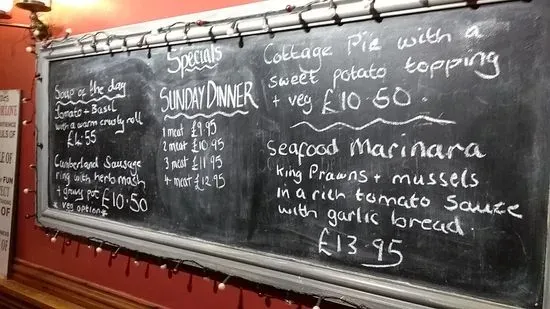 Specials
Soup of the day
Tomato + Basil
with a warm crusty roll
£4.55
Cumberland Sausage
ring with herb mash
+ gravy pot £10.50
* veg option *
SUNDAY DINNER
1 meat £9.95
2 meat £10.95
3 meat £11.95
4 meat £12.95
Cottage Pie with a
sweet potato topping
+ veg £10.50.
Seafood Marinara
King Prawns + mussels
in a rich tomato sauce
with garlic bread.
£13.95